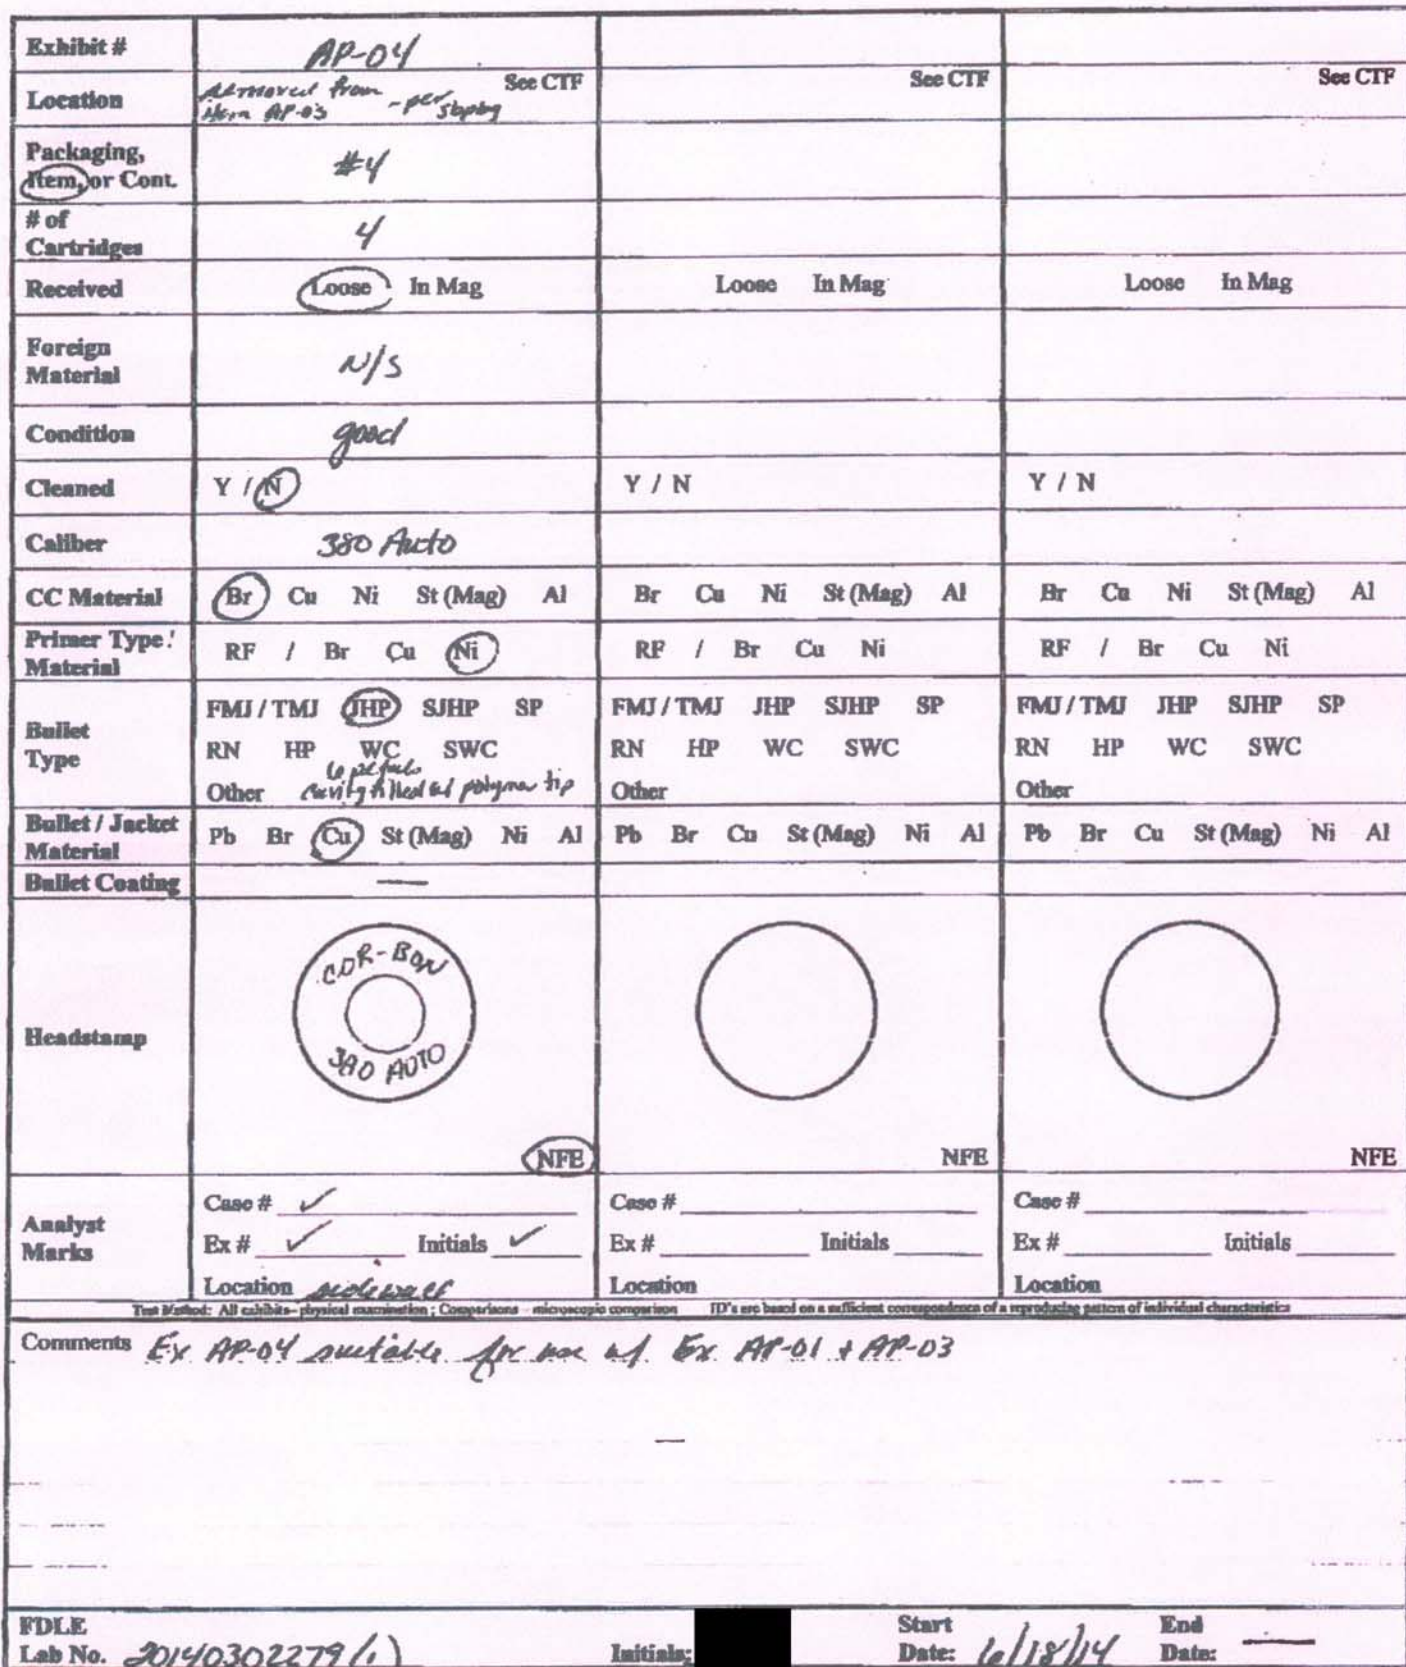 Exhibit # AP-04
Location removed from See CTF See CTF See CTF
Item AP-03 - per
Packaging,
Item, or Cont. #4
# of
Cartridges 4
Received Loose In Mag Loose In Mag Loose In Mag
Foreign
Material N/S
Condition good
Cleaned Y / N Y / N Y / N
Caliber 380 Auto
CC Material Br Cu Ni St (Mag) Al Br Cu Ni St (Mag) Al Br Cu Ni St (Mag) Al
Primer Type /
Material RF / Br Cu Ni RF / Br Cu Ni RF / Br Cu Ni
Bullet
Type
FMJ / TMJ JHP SJHP SP FMJ / TMJ JHP SJHP SP FMJ / TMJ JHP SJHP SP
RN HP WC SWC RN HP WC SWC RN HP WC SWC
6 petals
Other cavity filled w/ polymer tip Other Other
Bullet / Jacket
Material Pb Br Cu St (Mag) Ni Al Pb Br Cu St (Mag) Ni Al Pb Br Cu St (Mag) Ni Al
Bullet Coating —
Headstamp
COR-BON
380 AUTO
NFE NFE NFE
Analyst
Marks
Case # ✓ Case # Case #
Ex # ✓ Initials ✓ Ex # Initials Ex # Initials
Location sidewall Location Location
Test Method: All exhibits – physical examination ; Comparisons – microscopic comparison ID's are based on a sufficient correspondence of a reproducing pattern of individual characteristics
Comments Ex AP-04 suitable for use w/ Ex AP-01 + AP-03
FDLE
Lab No. 20140302279 (1) Initials: Start Date: 6/18/14 End Date: —